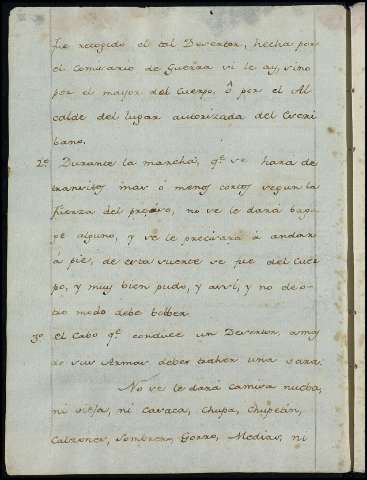 fue recogido el tal Desertor, hecha por
el Comisario de Guerra si le ay, sino
por el mayor del Cuerpo, ô por el Al
calde del lugar autorizada del Escri
bano.
2º Durante la marcha, qe se hara de
transitos mas ó menos cortos segun la
fuerza del preso, no se le dara baga
ge alguno, y se le precisará à andar
à pie, de esta suerte se fue del Cuer
po, y muy bien pudo, y assi, y no de o
tro modo debe bolber.
3º El Cabo qe conduce un Desertor, a mas
de sus Armas deber traher una vara.
No se le dará camisa nueba,
ni vieja, ni Casaca, Chupa, Chupetin,
Calzones, Sombrero, Gorro, Medias, ni